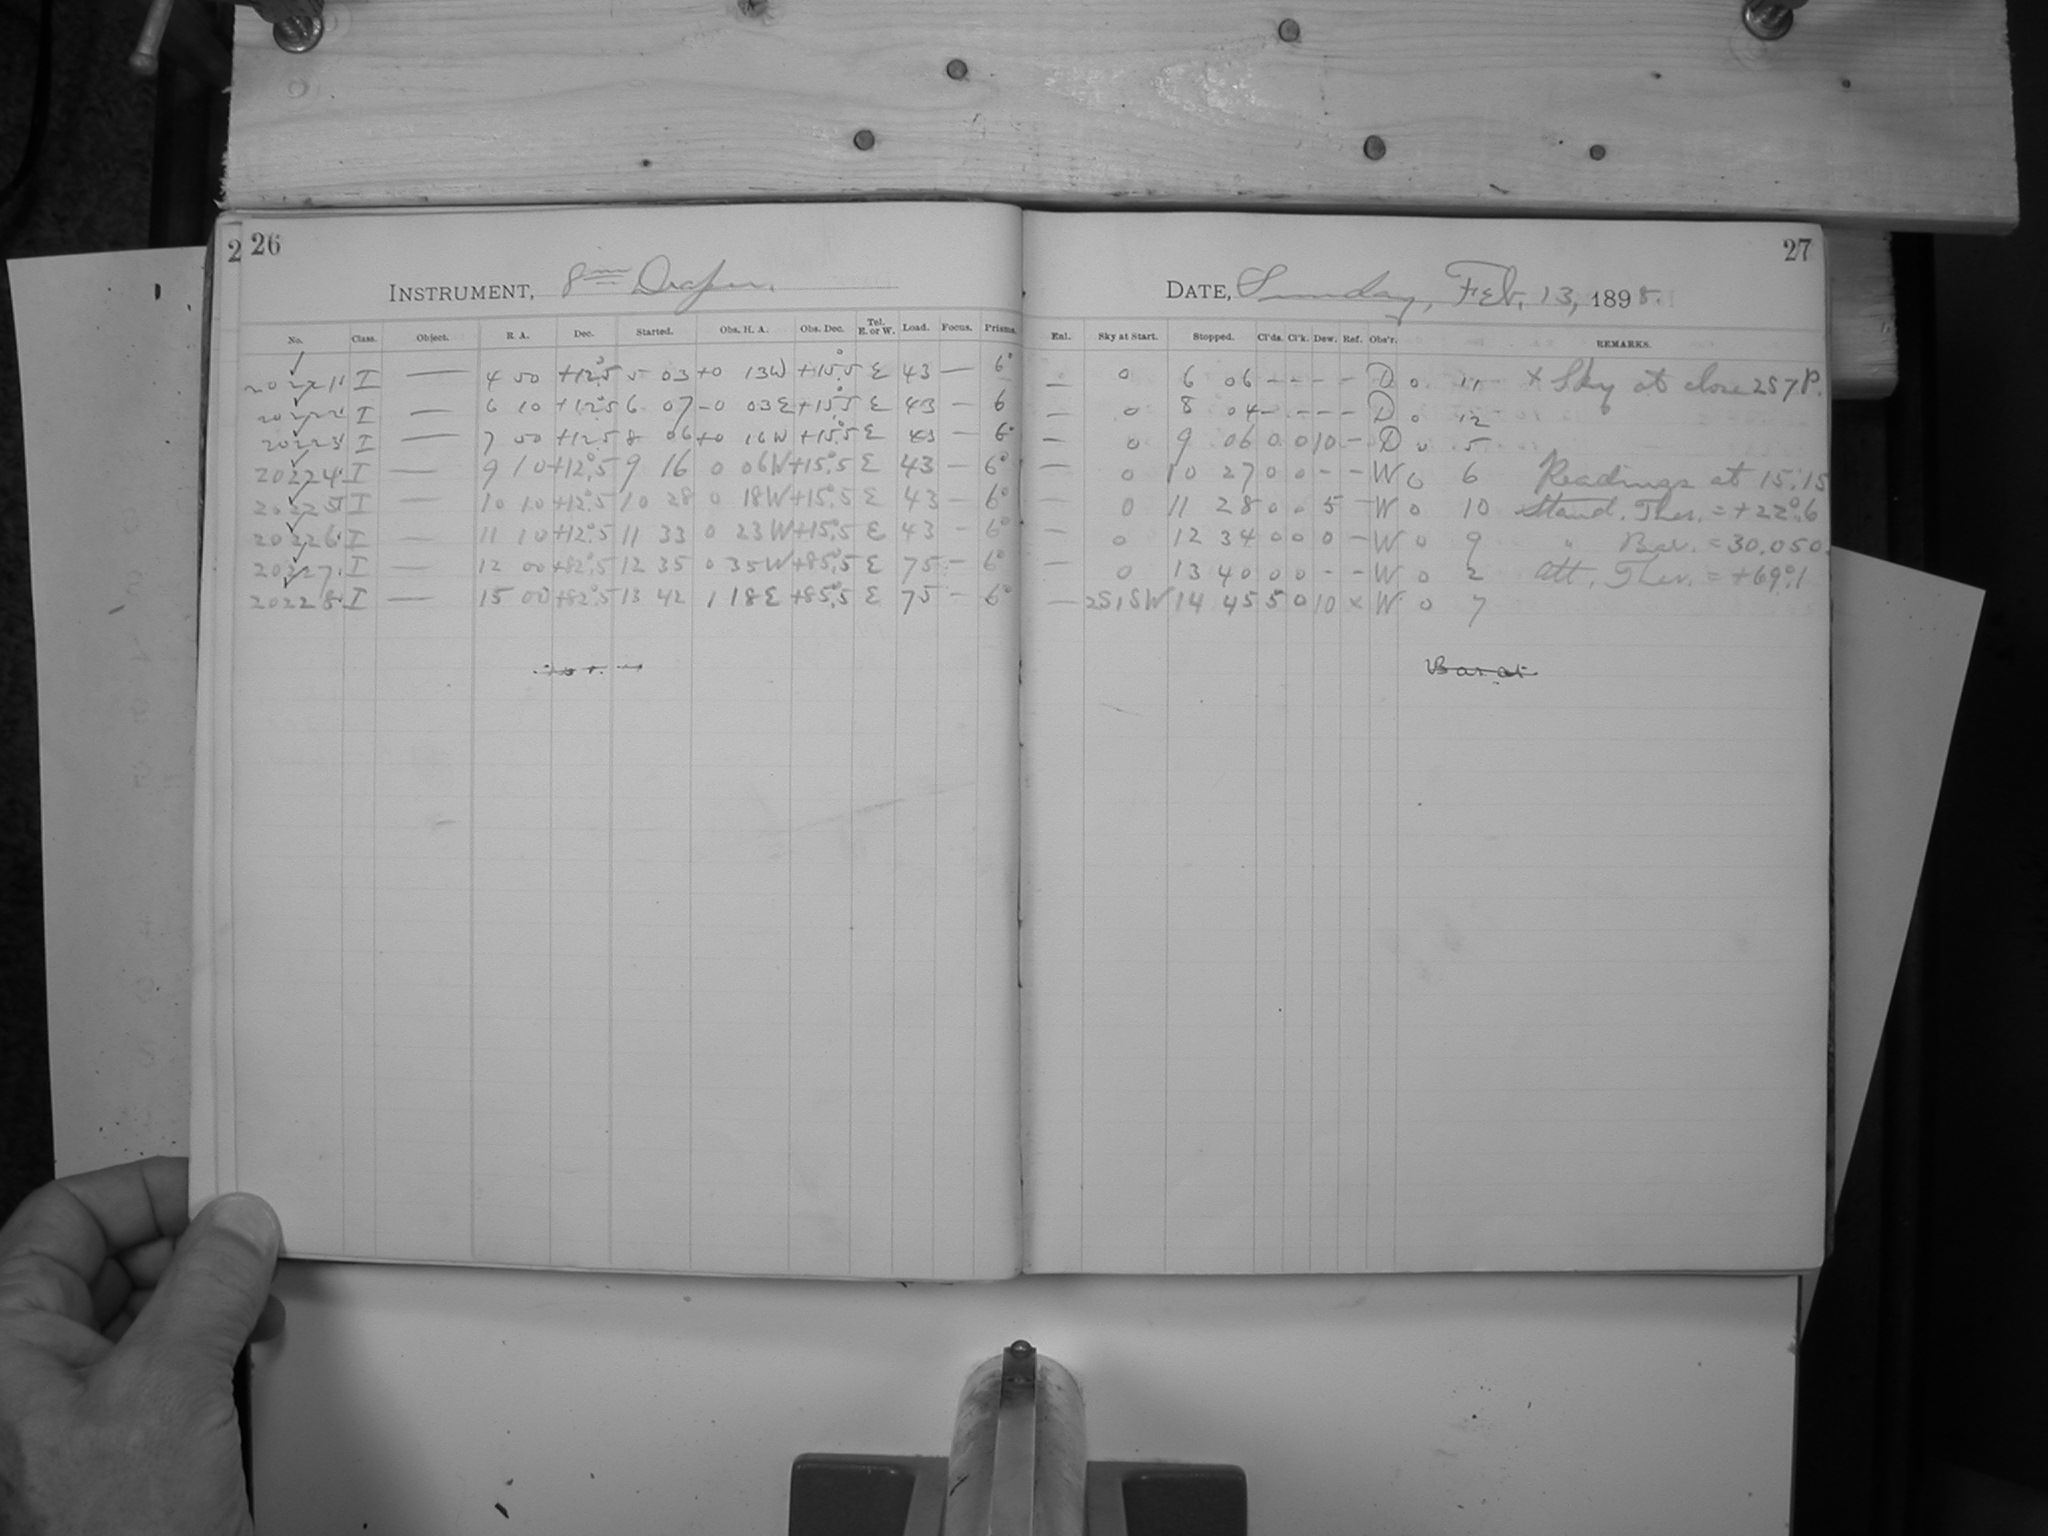 2 26
INSTRUMENT, 8 in Draper.
No. Class. Object. R. A. Dec. Started. Obs. H. A. Obs. Dec. Tel. E. or W. Load. Focus. Prisms.
20221 I — 4 50 +12°.5 5 03 +0 13W +15°.5 E 43 — 6°
20222 I — 6 10 +12°.5 6 07 -0 03E +15°.5 E 43 — 6
20223 I — 7 50 +12.5 8 06 +0 16W +15°.5 E 43 — 6°
20224 I — 9 10 +12°.5 9 16 0 06W +15°.5 E 43 — 6°
20225 I — 10 10 +12°.5 10 28 0 18W +15°.5 E 43 — 6°
20226 I — 11 10 +12°.5 11 33 0 23W +15°.5 E 43 — 6°
20227 I — 12 00 +82°.5 12 35 0 35W +85°.5 E 75 — 6°
20228 I — 15 00 +82°.5 13 42 1 18E +85°.5 E 75 — 6°
27
DATE, Sunday, Feb. 13, 1898.
Enl. Sky at Start. Stopped. Cl'ds. Cl'k. Dew. Ref. Obs'r. REMARKS.
— 0 6 06 - - - - D 0 11 × Sky at close 2S7P.
— 0 8 04 - - - - D 0 12
— 0 9 06 0 0 10 - D 0 5
— 0 10 27 0 0 - - W 0 6 Readings at 15:15
— 0 11 28 0 0 5 - W 0 10 Stand. Ther. = +22°.6
— 0 12 34 0 0 0 - W 0 9 " Bar. = 30.050.
— 0 13 40 0 0 - - W 0 2 Att. Ther. = +69°.1
— 2S1SW 14 45 5 0 10 × W 0 7
Bar at